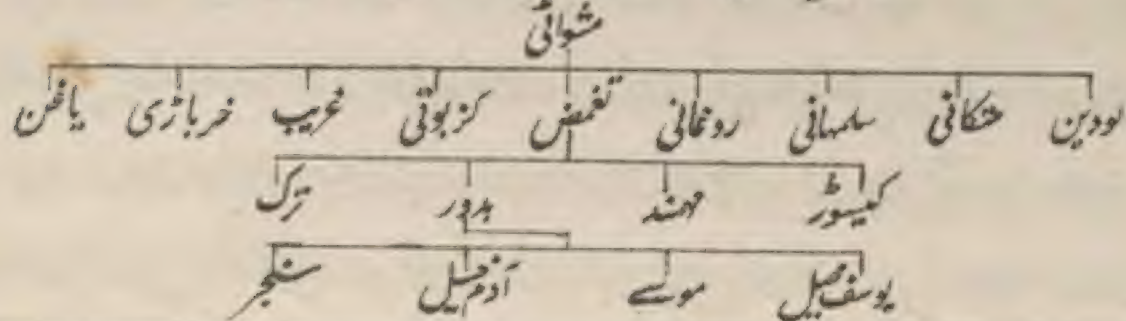 مشوانی
لودین متکانی سلمہانی روغانی تغمض کزبوتی غریب خرباڑی یاغن
کیسوڑ مہمند بدور ترک
یوسف خیل موسے آدم خیل سنجر